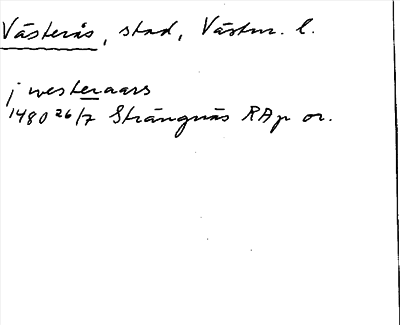 Västerås, stad, Västm. l.
j westeraars
1480 26/7 Strängnäs RAp or.